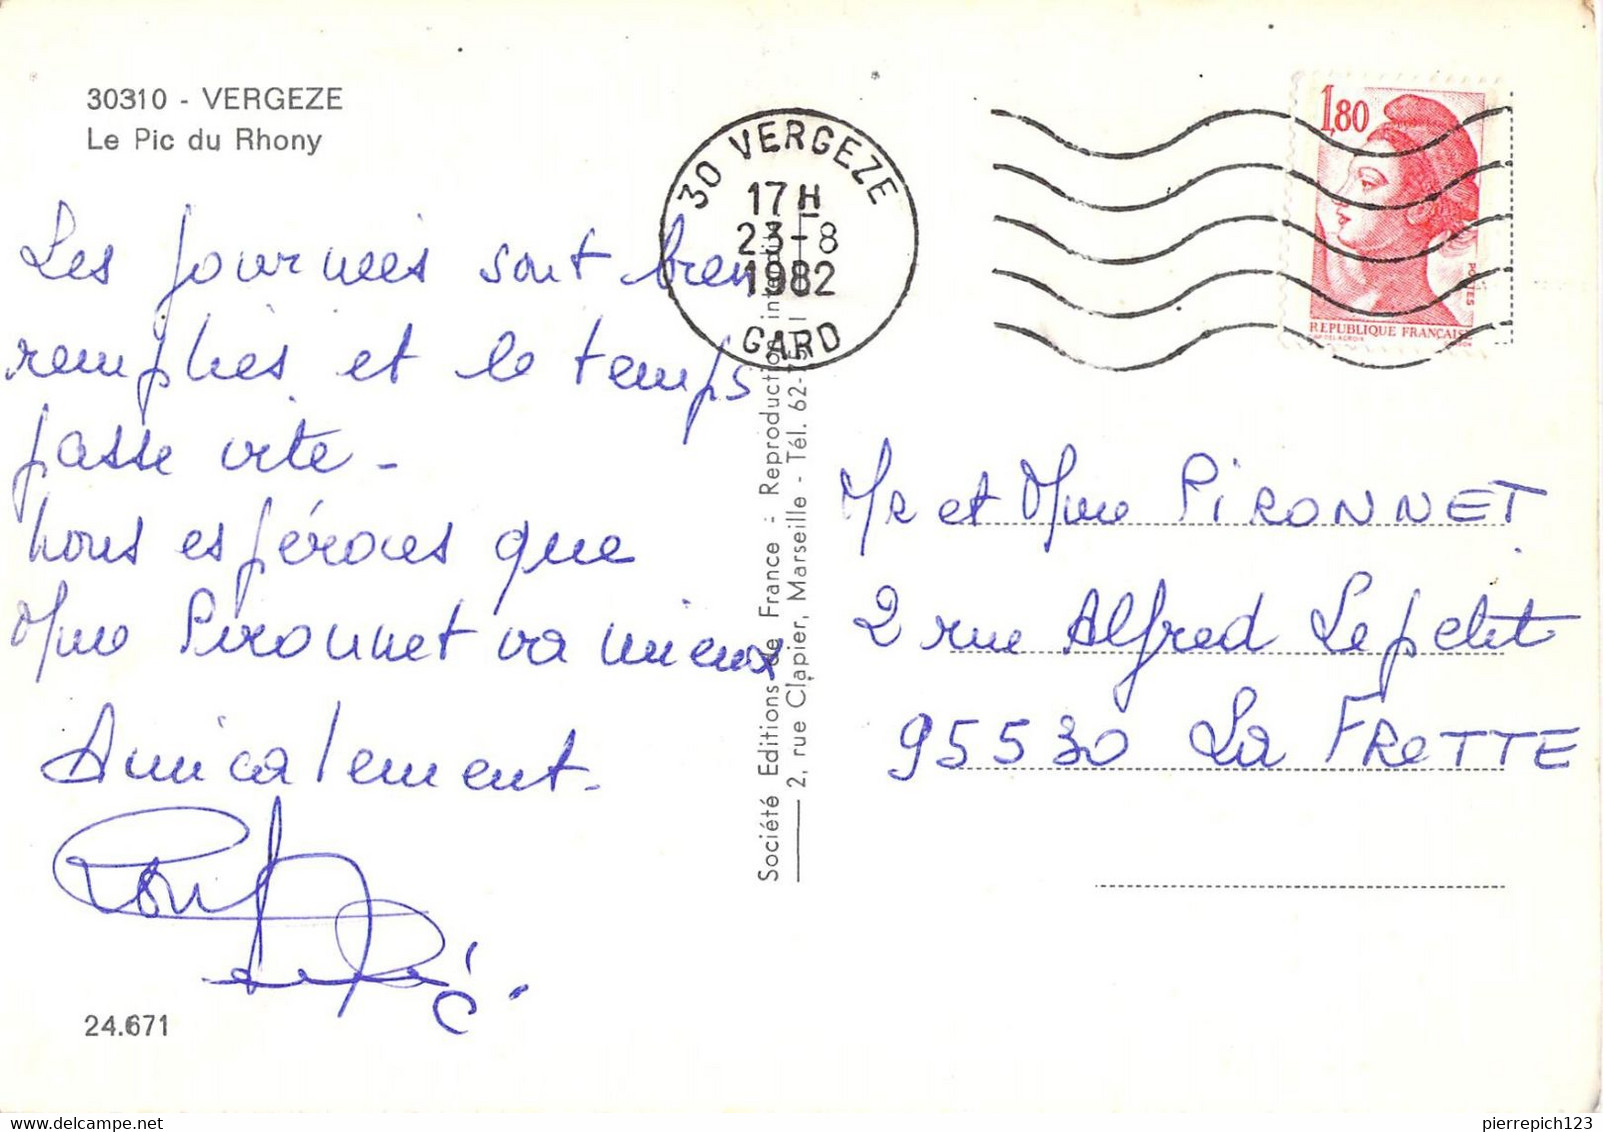 30310 - VERGEZE
Le Pic du Rhony
30 VERGEZE
17 H
23-8
1982
GARD
1,80
POSTES
REPUBLIQUE FRANÇAISE
Les journées sont bien
remplies et le temps
passe vite -
nous espérons que
Mme Pironnet va mieux
Amicalement.
24.671
Société Editions de France - Reproduction
2, rue Clapier, Marseille - Tél. 62-
Mr et Mme PIRONNET
2 rue Alfred Lepetit
95530 La FRETTE
pierrepich123